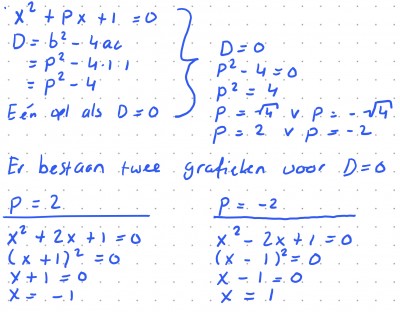 x² + px + 1 = 0
D = b² - 4ac
= p² - 4·1·1
= p² - 4
Eén opl als D = 0
D = 0
p² - 4 = 0
p² = 4
p = √4 v p = -√4
p = 2 v p = -2
Er bestaan twee grafieken voor D = 0
p = 2
x² + 2x + 1 = 0
(x + 1)² = 0
x + 1 = 0
x = -1
p = -2
x² - 2x + 1 = 0
(x - 1)² = 0
x - 1 = 0
x = 1